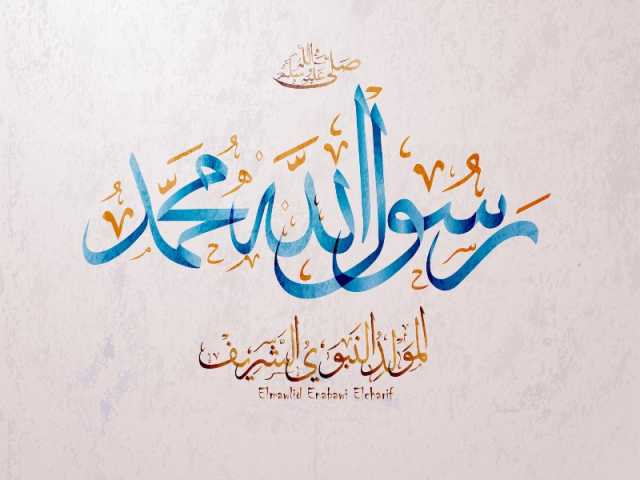 صلى الله عليه وسلم
رسول الله محمد
المولد النبوي الشريف
Elmawlid Enabawi Elcharif